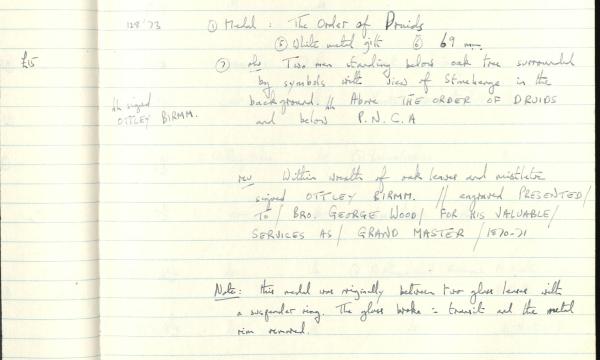 128'73
① Medal : The Order of Druids
⑤ White metal gilt ⑥ 69 mm.
£15
⑦ obv Two men standing below oak tree surrounded
by symbols with view of Stonehenge in the
background. // Above THE ORDER OF DRUIDS
and below P.N.C.A
// signed
OTTLEY BIRMM.
rev Within wreath of oak leaves and mistletoe
signed OTTLEY BIRMM. // engraved PRESENTED/
TO/ BRO. GEORGE WOOD/ FOR HIS VALUABLE/
SERVICES AS/ GRAND MASTER /1870-71
Note: this medal was originally between two glass lenses with
a suspender ring. The glass broke in transit and the metal
rim removed.